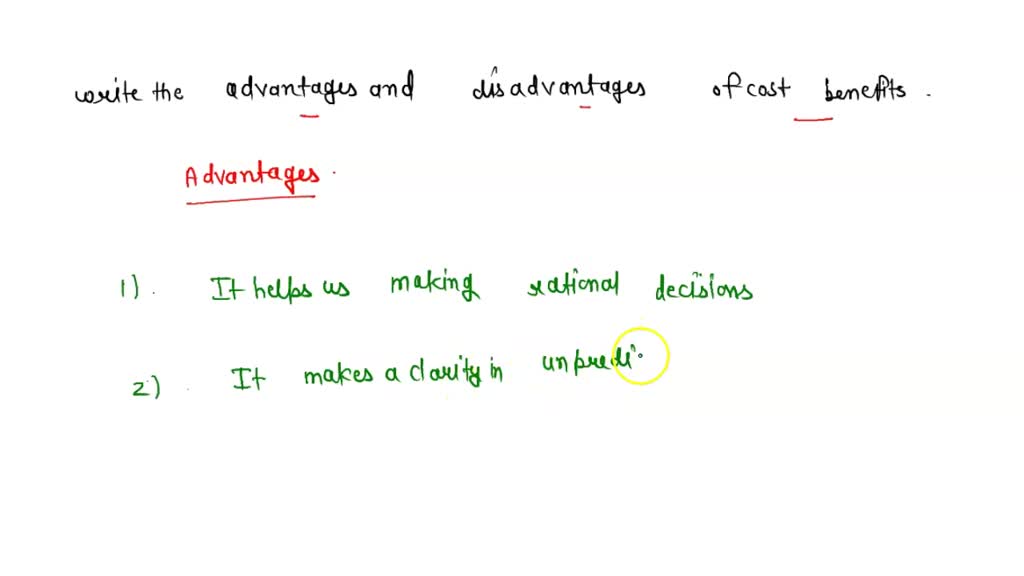 write the advantages and disadvantages of cost benefits .
Advantages .
1) . It helps us making rational decisions
2) . It makes a clarity in unpredi